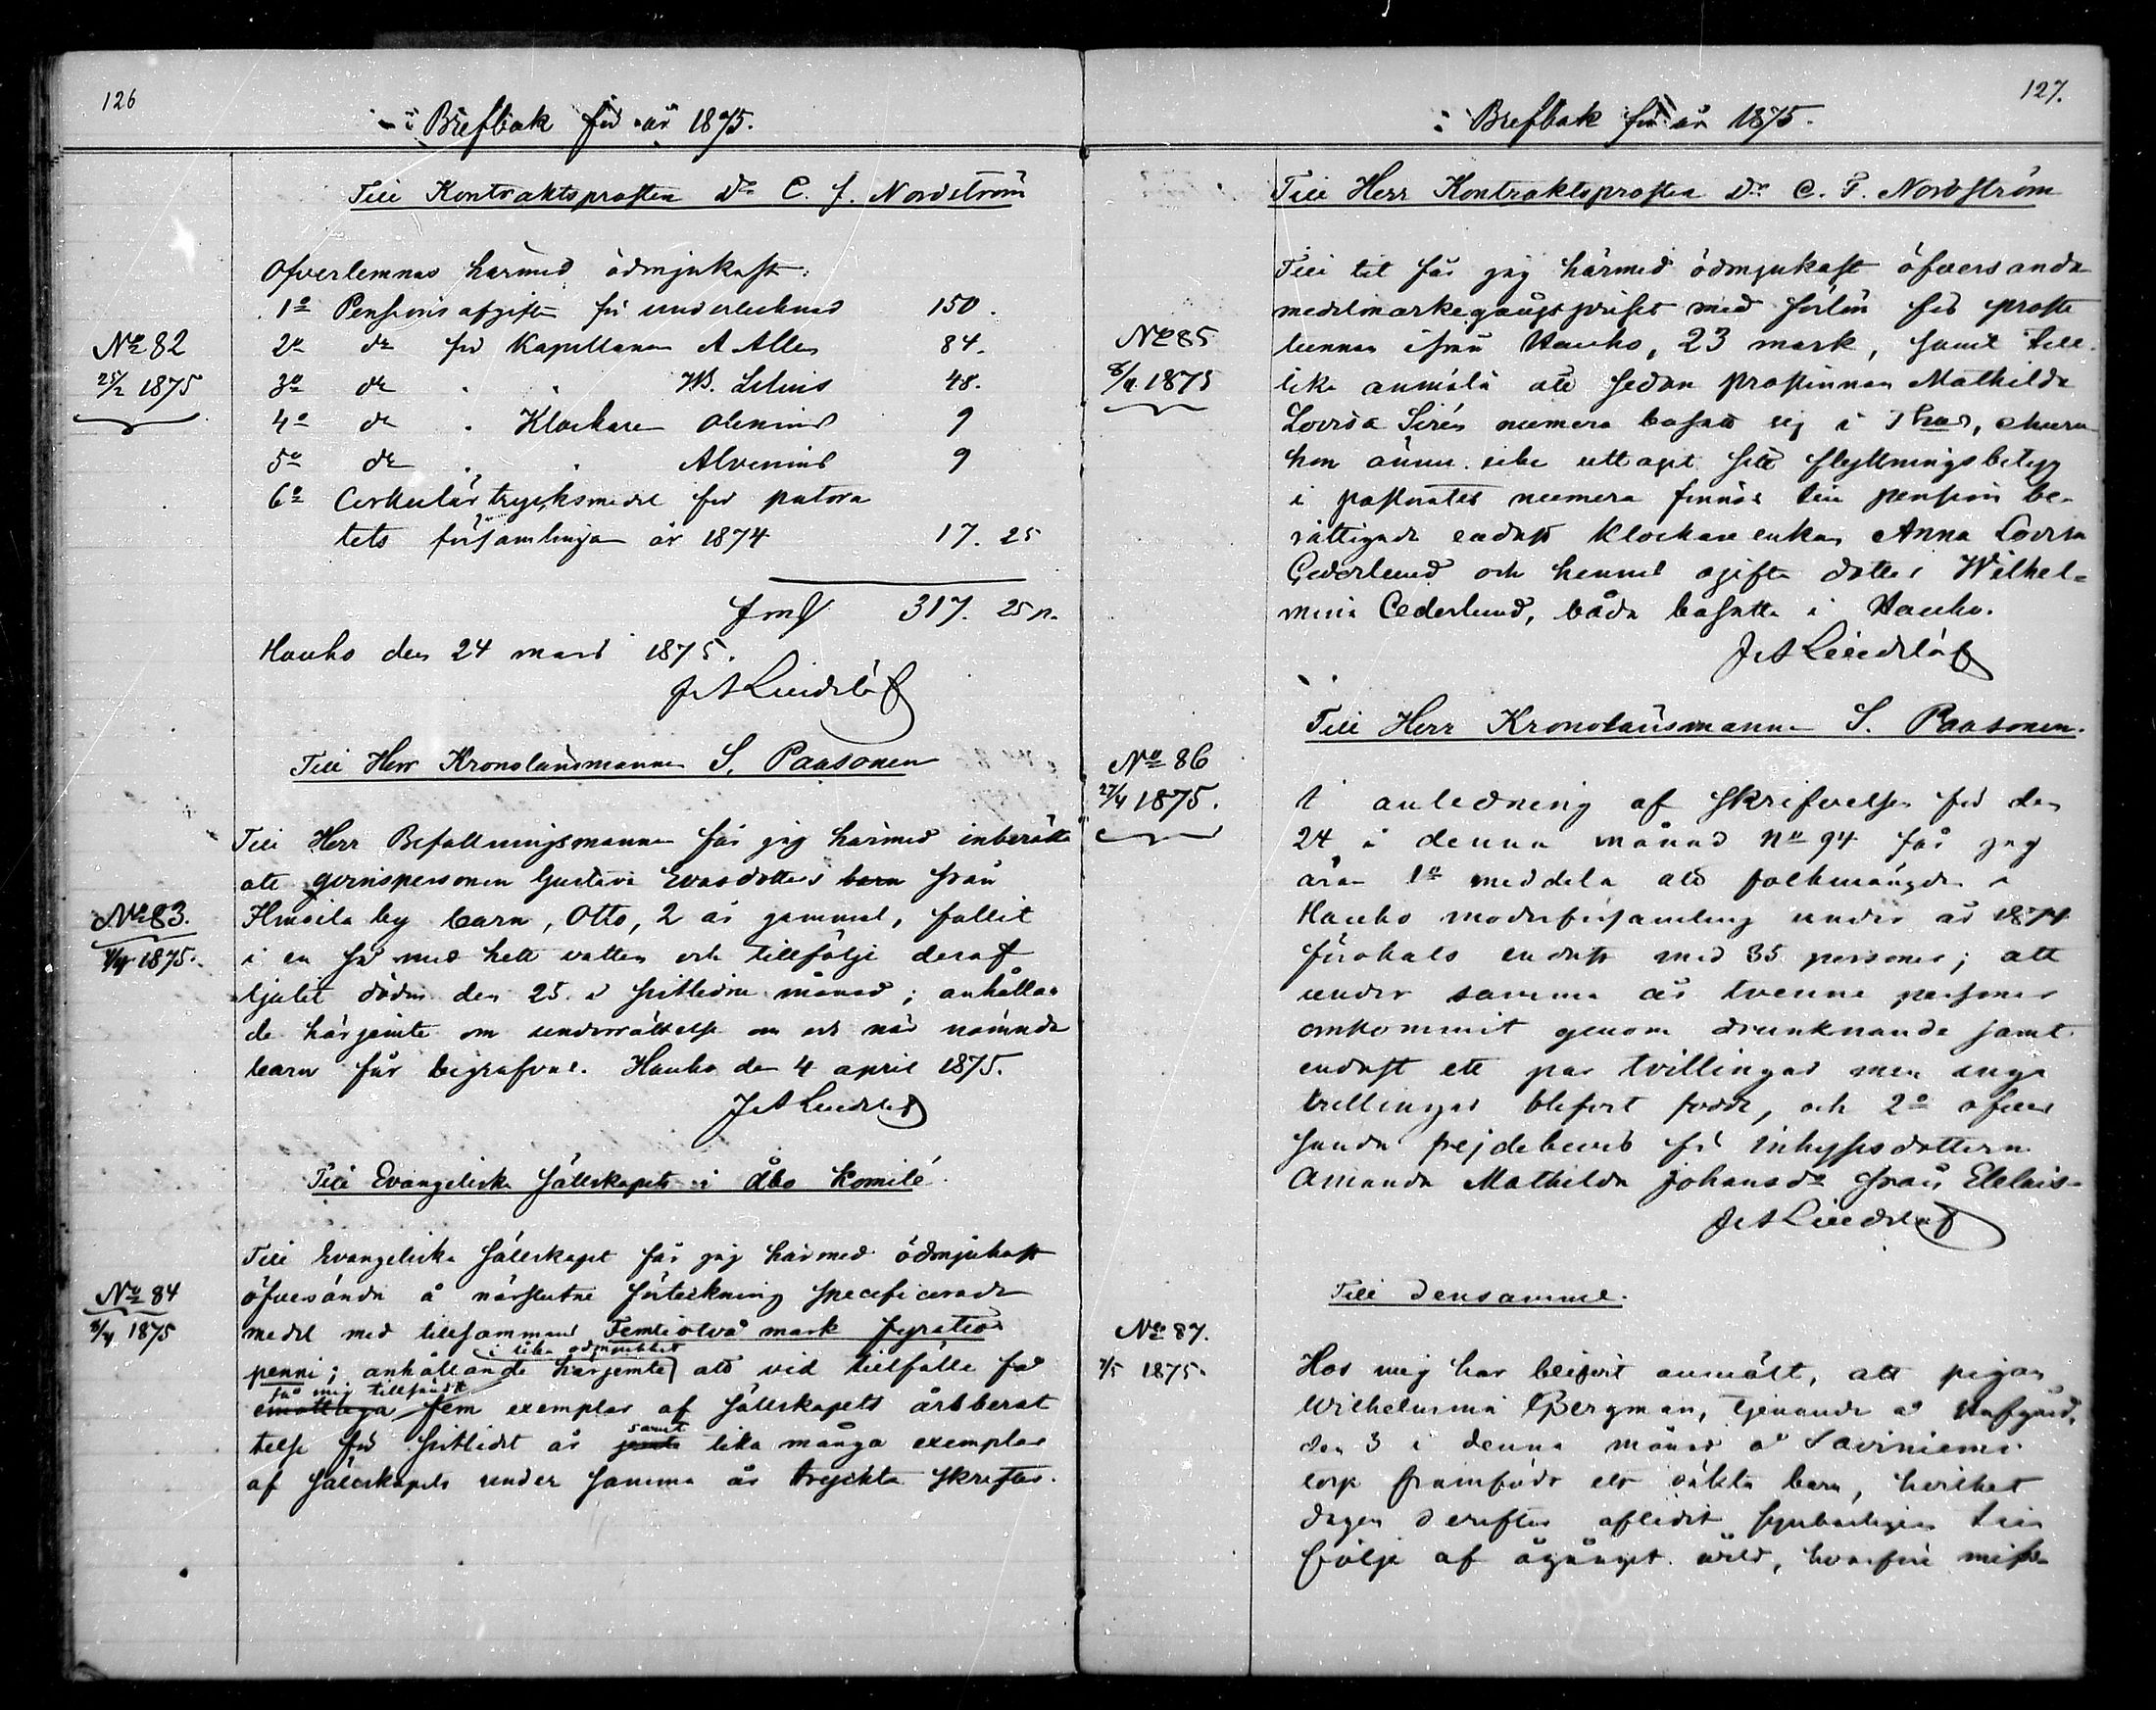 126
Brefbok för år 1875.
Till Kontraktsprosten Dr C. F. Nordström
Öfverlemnas härmed ödmjukast:
1o Pensionsafgiften för undertecknad 150.
No 82
2o do för Kapellanen A Allen 84.
25/2 1875
3o do " " W. Lilius 48.
4o do " Klockaren Olenius 9
5o do " " Alvenius 9
6o Cirkulär trycksmedel för pastora
tets församlingar år 1874 17. 25
Fmk 317. 25 p.
Hauho den 24 mars 1875.
J A Lindelöf
Till Herr Kronolänsmannen S. Paasonen
Till Herr Befallningsmannen får jag härmed inberätta
att qvinspersonen Gustava Evasdotters barn från
No 83.
by barn, Otto, 2 år gammal, fallit
4/4 1875.
i en så med hett vatten och tillfölje deraf
ljutit döden den 25 i sistlidne månad; anhållan
de härjemte om underrättelse om och när nämnda
barn får begrafvas. Hauho den 4 april 1875.
J A Lindelöf
Till Evangeliska Sällskapets i Åbo Komité.
Till Evangeliska Sällskapet får jag härmed ödmjukast
No 84
öfversända å närslutne förteckning specificerade
8/4 1875
medel med tillsammans Femtiotvå mark fyratio
i lika ödmjukhet
penni; anhållande härjemte att vid tillfälle få
få mig tillsändt
emottaga fem exemplar af Sällskapets årsberät
samt
telse för sistlidet år jemte lika många exemplar
af Sällskapets under samma år tryckta skrifter.
127.
Brefbok för år 1875.
Till Herr Kontraktsprosten Dr C. F. Nordström
Till tit får jag härmed ödmjukast öfversända
medelmarkegångspriset med förlön för prosta
No 85
tunnan ifrån Hauho, 23 mark, samt till
8/4 1875
lika anmäla att sedan Prostinnan Mathilda
Lovisa Sirén numera bosatt sig i , ehuru
hon ännu icke uttagit sitt flyttningsbetyg
i pastoratet numera finnes till pension be-
rättigade endast Klockare enkan Anna Lovisa
Cederlund och hennes ogifta dotter Wilhel-
mina Cederlund, båda bosatta i Hauho.
J A Lindelöf
Till Herr Kronolänsmannen S. Paasonen.
No 86
27/4 1875.
I anledning af skrifvelse för den
24 i denna månad No 94 får jag
äran 1o meddela att folkmängden i
Hauho moderförsamling under år 1874
förökats endast med 35 personer; att
under samma år tvenne personer
omkommit genom drunknande samt
endast ett par tvillingar men inga
trillingar blifvit födde, och 2o öfver
sända frejdebevis för Inhysesdottern
Amanda Mathilda Johansdr från
J A Lindelöf
Till Densamme.
No 87.
7/5 1875.
Hos mig har blifvit anmält, att pigan
Wilhelmina Bergman, tjenande å
den 3 i denna månad å Saviniemi
torp framfödt ett oäkta barn, hvilket
dagen derefter aflidit synbarligen till
följe af öfvadt våld, hvarföre miss-